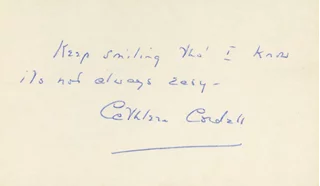 Keep smiling tho' I know
it's not always easy -
Cathleen Cordell